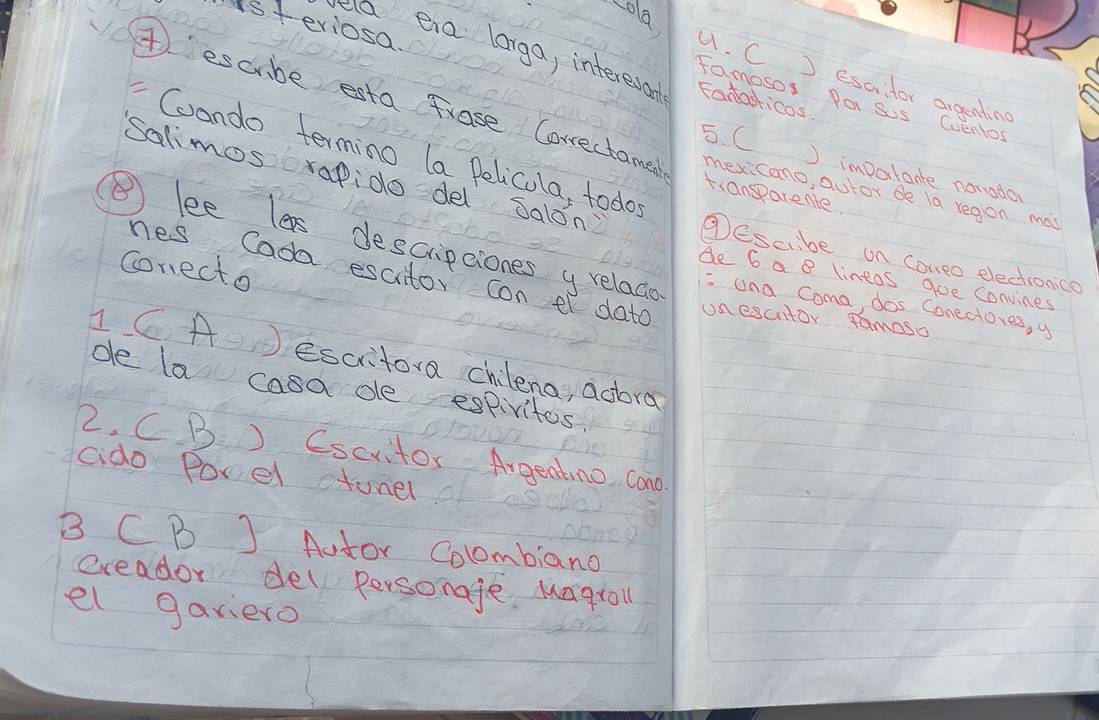 era larga, interesante
steriosa.
7. escribe esta Frase Correctamente
= Cuando termino la Pelicula, todos
Salimos rapido del Salón"
8 lee las descripciones y relacio-
nes Cada escritor con el dato
correcto
1. ( A ) escritora chilena, actora
de la casa de espiritos.
2. ( B ) Escritor Argentino cono-
cido Por el tunel
3 ( B ) Autor Colombiano
creador del Personaje Magroll
el gaviero
4. ( ) escritor argentino
Famosos Por Sus Cuentos
Fantasticos.
5. ( ) importante narrador
mexicano, autor de la region mas
transparente.
9 Escribe un correo electronico
de 6 a 8 lineas que convines
: una coma, dos conectores, y
un escritor Famoso